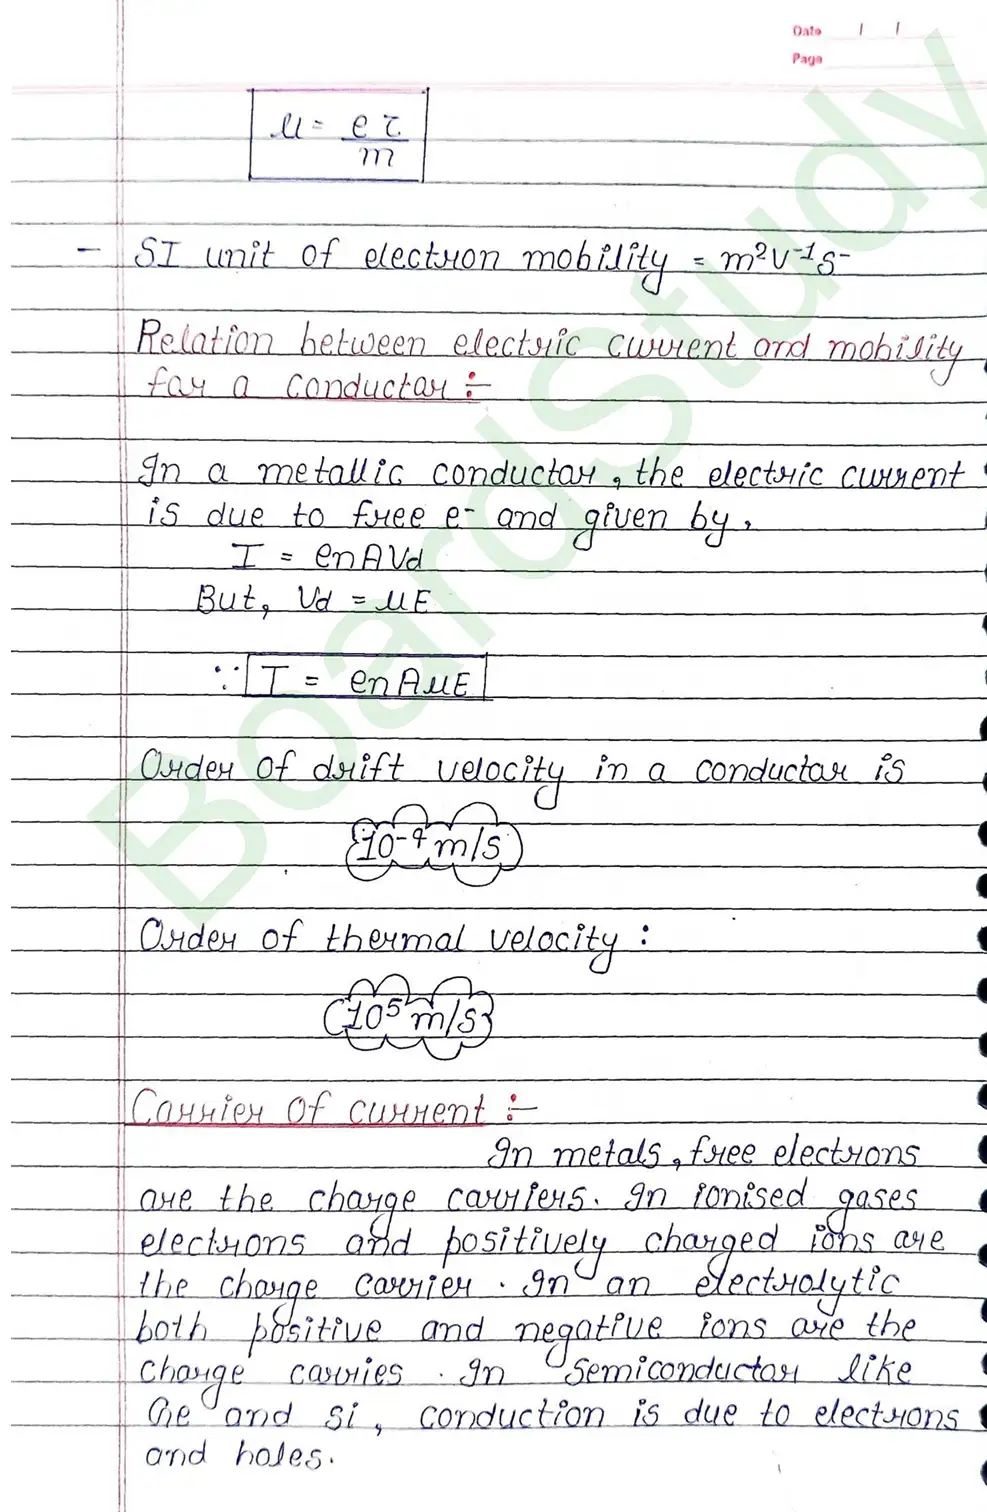 Date / /
Page
μ = eτ/m
- SI unit of electron mobility = m²V⁻¹S⁻
Relation between electric current and mobility
for a conductor :-
In a metallic conductor, the electric current
is due to free e⁻ and given by,
I = enAVd
But, Vd = μE
∵ I = enAμE
Order of drift velocity in a conductor is
10⁻⁴ m/s
Order of thermal velocity :
10⁵ m/s
Carrier of current :-
In metals, free electrons
are the charge carriers. In ionised gases
electrons and positively charged ions are
the charge carrier. In an electrolytic
both positive and negative ions are the
charge carries. In semiconductor like
Ge and si, conduction is due to electrons
and holes.
BoardStudy